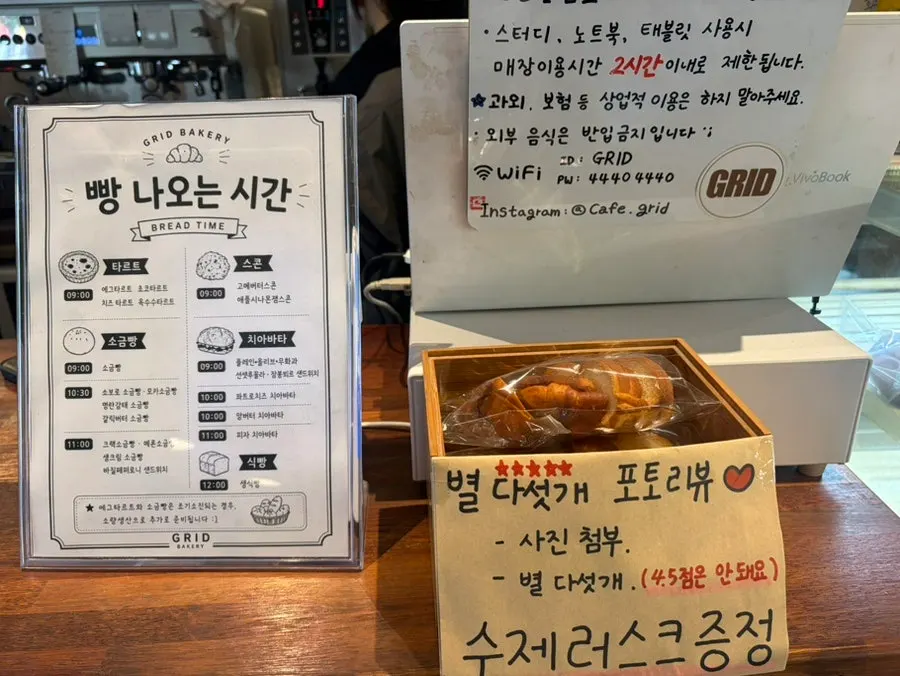 GRID BAKERY
빵 나오는 시간
BREAD TIME
타르트
09:00
에그타르트 초코타르트
치즈타르트 옥수수타르트
소금빵
09:00
소금빵
10:30
소보로 소금빵 · 모카소금빵
명란감태 소금빵
갈릭버터 소금빵
11:00
크랙소금빵 · 메론소금빵
생크림 소금빵
바질페퍼로니 샌드위치
스콘
09:00
고메버터스콘
애플시나몬잼스콘
치아바타
09:00
플레인·올리브·무화과
선셋루꼴라 · 잠봉뵈르 샌드위치
10:00
콰트로치즈 치아바타
10:00
앙버터 치아바타
11:00
피자 치아바타
식빵
12:00
생식빵
★ 에그타르트와 소금빵은 조기소진되는 경우,
소량생산으로 추가로 준비됩니다 :]
GRID
BAKERY
· 스터디, 노트북, 태블릿 사용시
매장이용시간 2시간 이내로 제한됩니다.
★ 과외, 보험 등 상업적 이용은 하지 말아주세요.
· 외부 음식은 반입금지입니다 :;
WiFi
ID: GRID
PW: 44404440
Instagram: @Cafe.grid
GRID
VivoBook
★★★★★
별 다섯개 포토리뷰 ♥
- 사진 첨부.
- 별 다섯개. (4.5점은 안돼요)
수제러스크증정